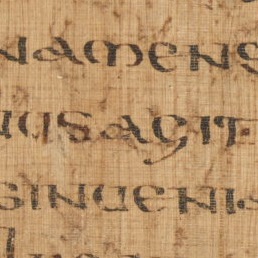 namens
usagit
singenis